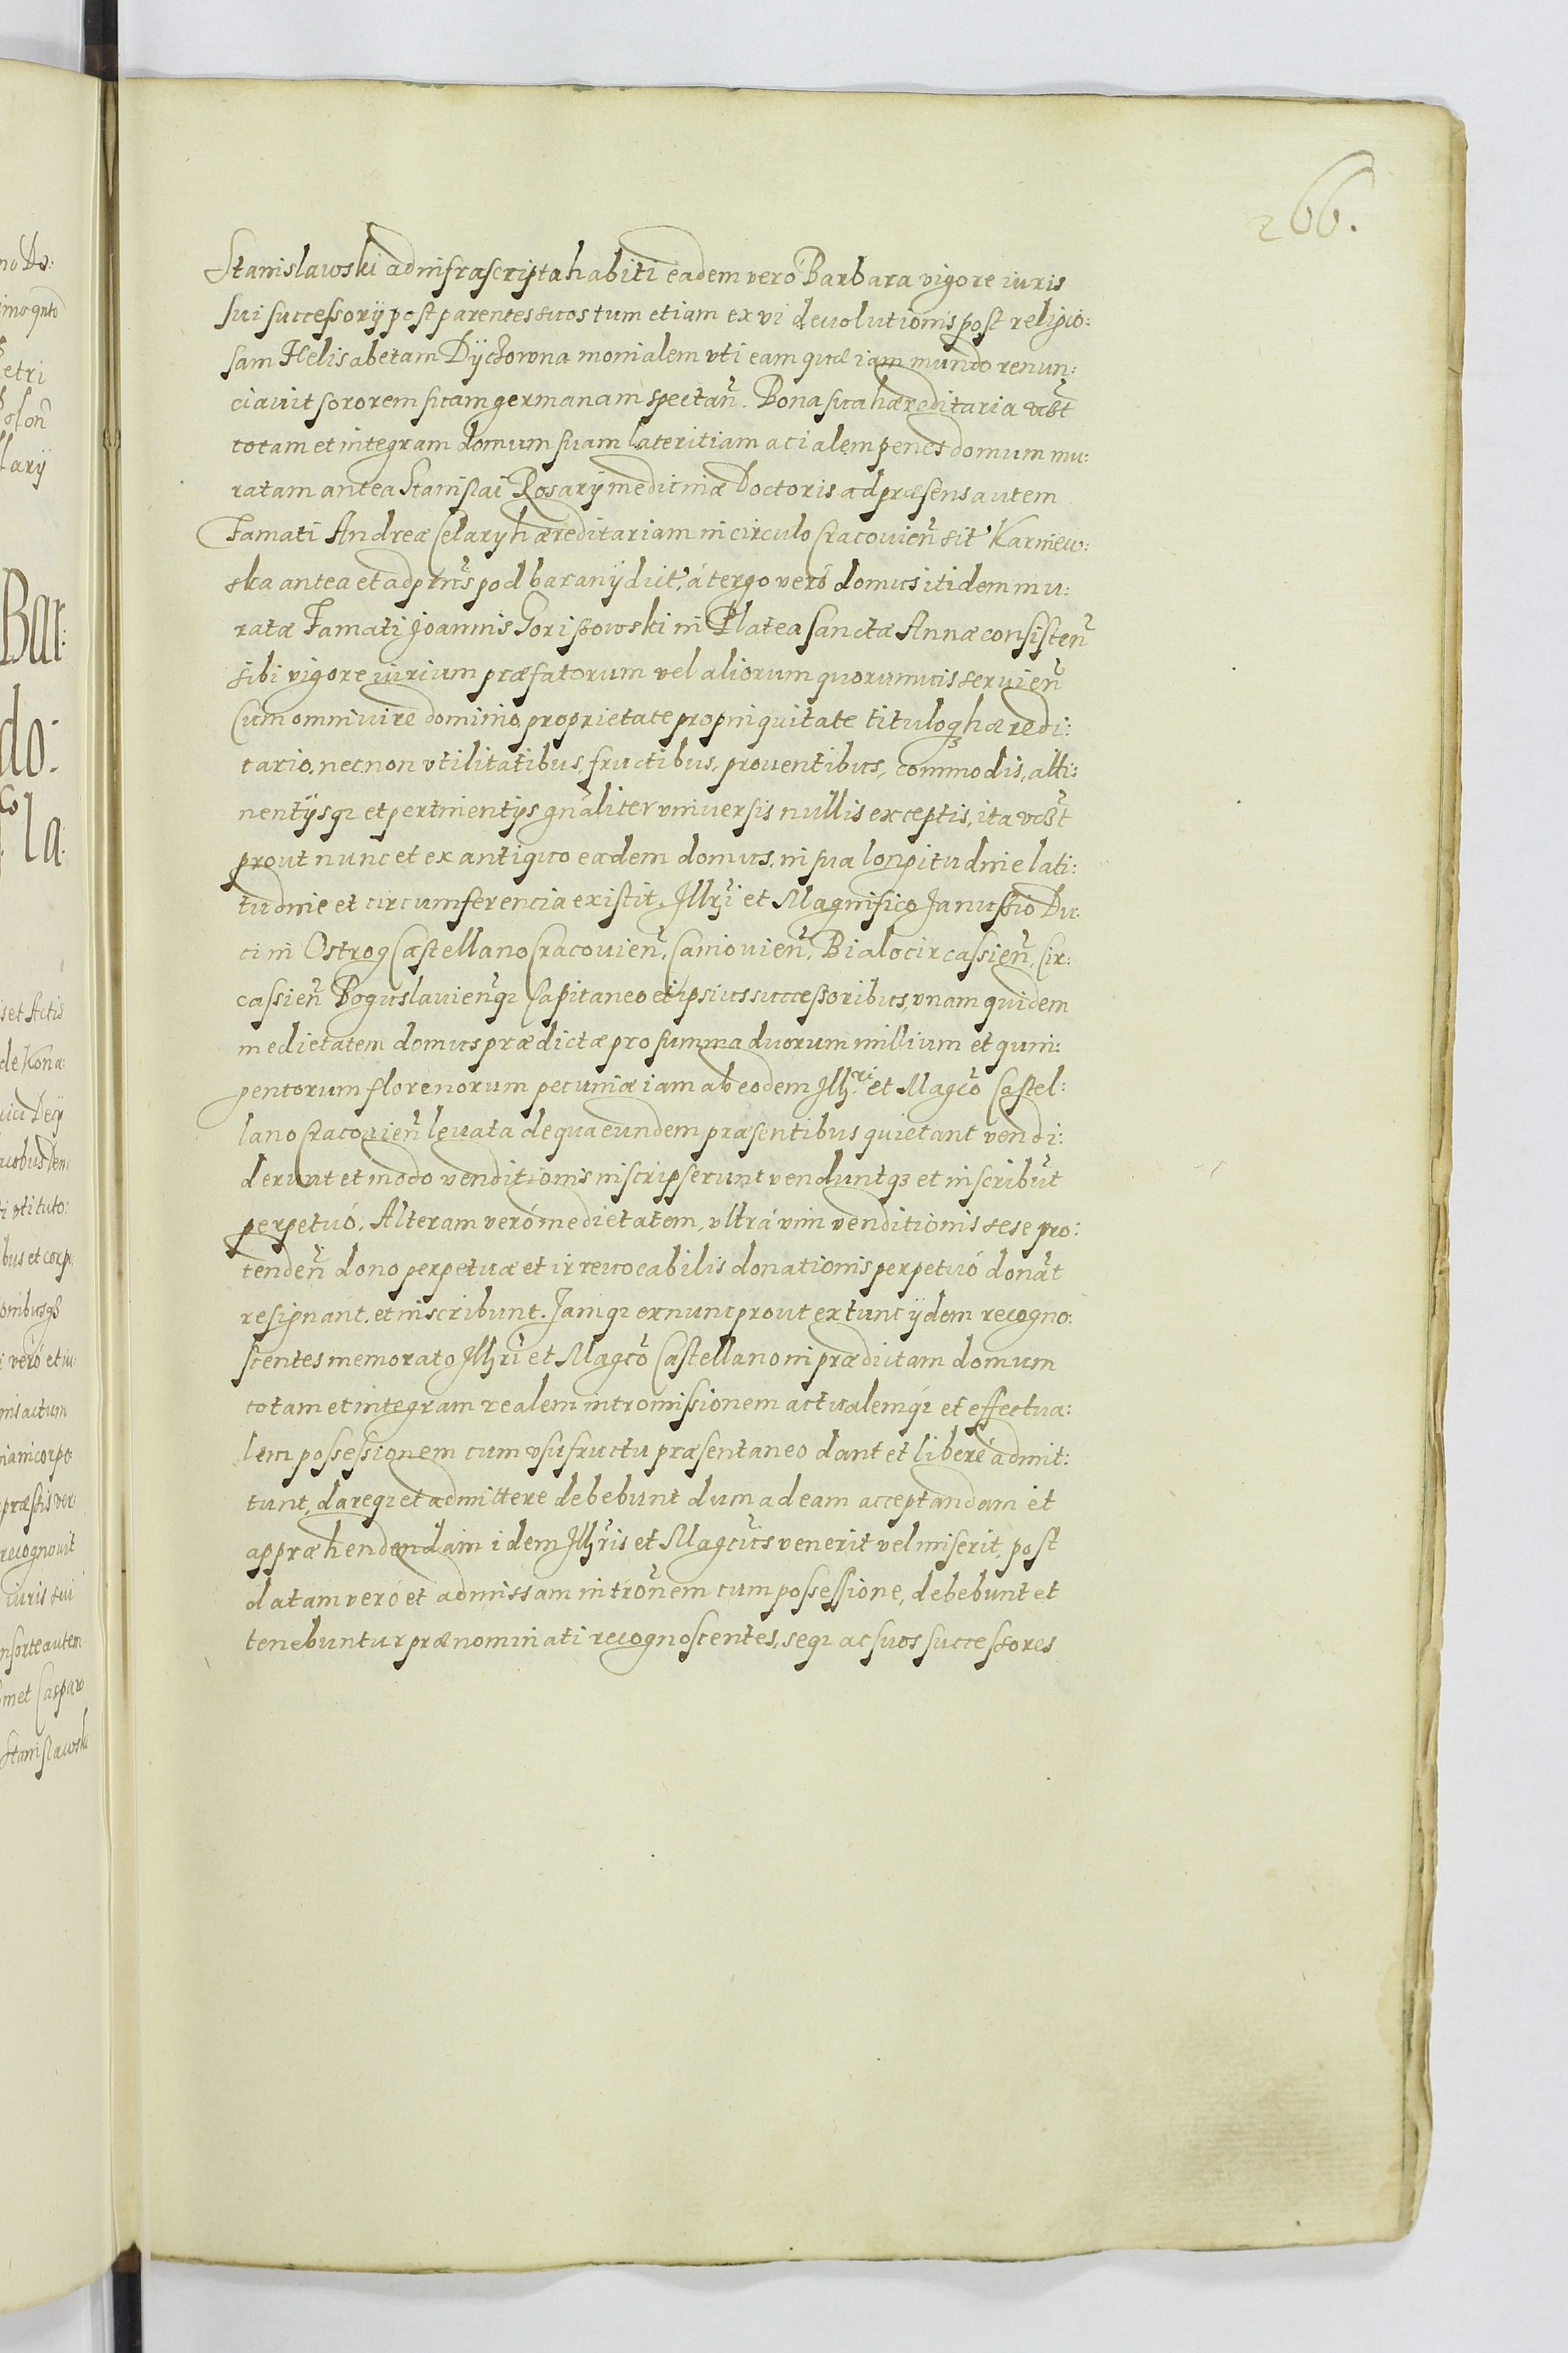 266.
Stanislawski ad infrascripta habiti eadem verò Barbara vigore iuris
sui successorÿ post parentes suos tum etiam ex vi deuolutionis post religio:
sam Helisabetam Dÿctowna monialem vti eam quæ iam mundo renun:
ciauit sororem suam germanam spectañ. Bona sua hæreditaria vc̃bt
totam et integram domum suam lateritiam acialem penes domum mu:
ratam antea Stanislai Rosarÿ medicinæ Doctoris ad præsens autem
Famati Andreæ Celary hæreditariam in circulo Cracouieñ sit' Karniew:
ska antea et ad prñs pod baranÿ dict', à tergo verò domus itidem mu:
ratæ Famati Joannis Goriszowski in Platea Sanctæ Annæ consisteñ
sibi vigore iurium præfatorum vel aliorum quorumuis seruieñ
Cum omni iure dominio, proprietate propinquitate tituloq3 hæredi:
tario, necnon vtilitatibus, fructibus, prouentibus, commodis, atti:
nentÿsq3 et pertinentÿs gñaliter vniuersis nullis exceptis, ita vc̃bt
prout nunc et ex antiquo eadem domus, in sua longitudine lati:
tudine et circumferencia existit. Jllr̃i et Magnifico Janussio Du:
ci in Ostrog Castellano Cracouieñ, Caniouieñ, Bialocircassieñ, Cir:
cassieñ Boguslauieñq3 Capitaneo et ipsius successoribus, vnam quidem
medietatem domus prædictæ pro summa duorum millium et quin:
gentorum florenorum pecuniæ iam ab eodem Jll. ri et Magc̃o Castel:
lano Cracouieñ leuata de qua eundem præsentibus quietant vendi:
derunt et modo venditionis inscripserunt venduntq3 et inscribũt
perpetuó. Alteram veró medietatem, vltrá vim venditionis sese pro:
tendeñ dono perpetuæ et irreuocabilis donationis perpetuó donãt
resignant, et inscribunt. Jamq3 ex nunc prout ex tunc ÿdem recogno:
scentes memorato Jllr̃i et Magc̃o Castellano in prædictam domum
totam et integram realem intromissionem actualemq3 et effectua:
lem possessionem cum vsufructu præsentaneo dant et liberè admit:
tunt, dareq3 et admittere debebunt dum ad eam acceptandam et
appræhendendam idem Jllr̃is et Magc̃us venerit vel miserit, post
datam veró et admissam intrõnem cum possessione, debebunt et
tenebuntur prænominati recognoscentes, seq3 ac suos successores